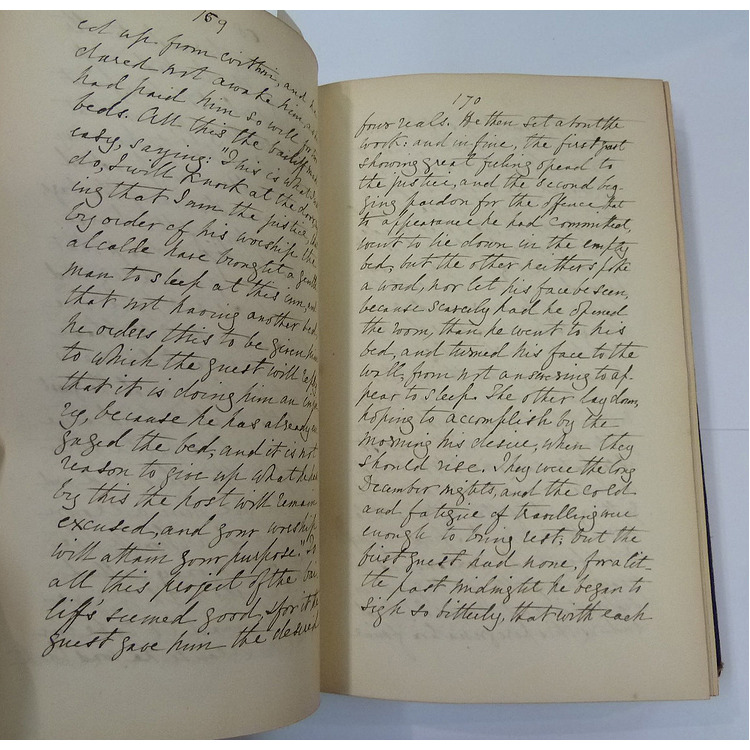 169
ed up from within, and he
dared not awake him, as he
had paid him so well for two
beds. All this the bailiff made
easy, saying: "This is what I'll
do, I will knock at the door, say
ing that I am the justice, that
by order of his worship the
alcalde have brought a gentle
man to sleep at this inn, and
that not having another bed
he orders this to be given him
to which the guest will reply
that it is doing him an inju
ry, because he has already en
gaged the bed, and it is not
reason to give up what he has
by this the host will remain
excused, and your worship
will attain your purpose." To
all this project of the bai
liff's seemed good, for it the
guest gave him the desired
170
four reals. He then set about the
work: and in fine, the first part
showing great feeling opened to
the justice, and the second beg-
ging pardon for the offence that
to appearance he had committed,
went to lie down in the empty
bed, but the other neither spoke
a word, nor let his face be seen,
because scarcely had he opened
the room, than he went to his
bed, and turned his face to the
wall, from not answering to ap-
pear to sleep. The other lay down,
hoping to accomplish by the
morning his desire, when they
should rise. They were the long
December nights, and the cold
and fatigue of travelling were
enough to bring rest; but the
first guest had none, for a lit-
tle past midnight he began to
sigh so bitterly, that with each